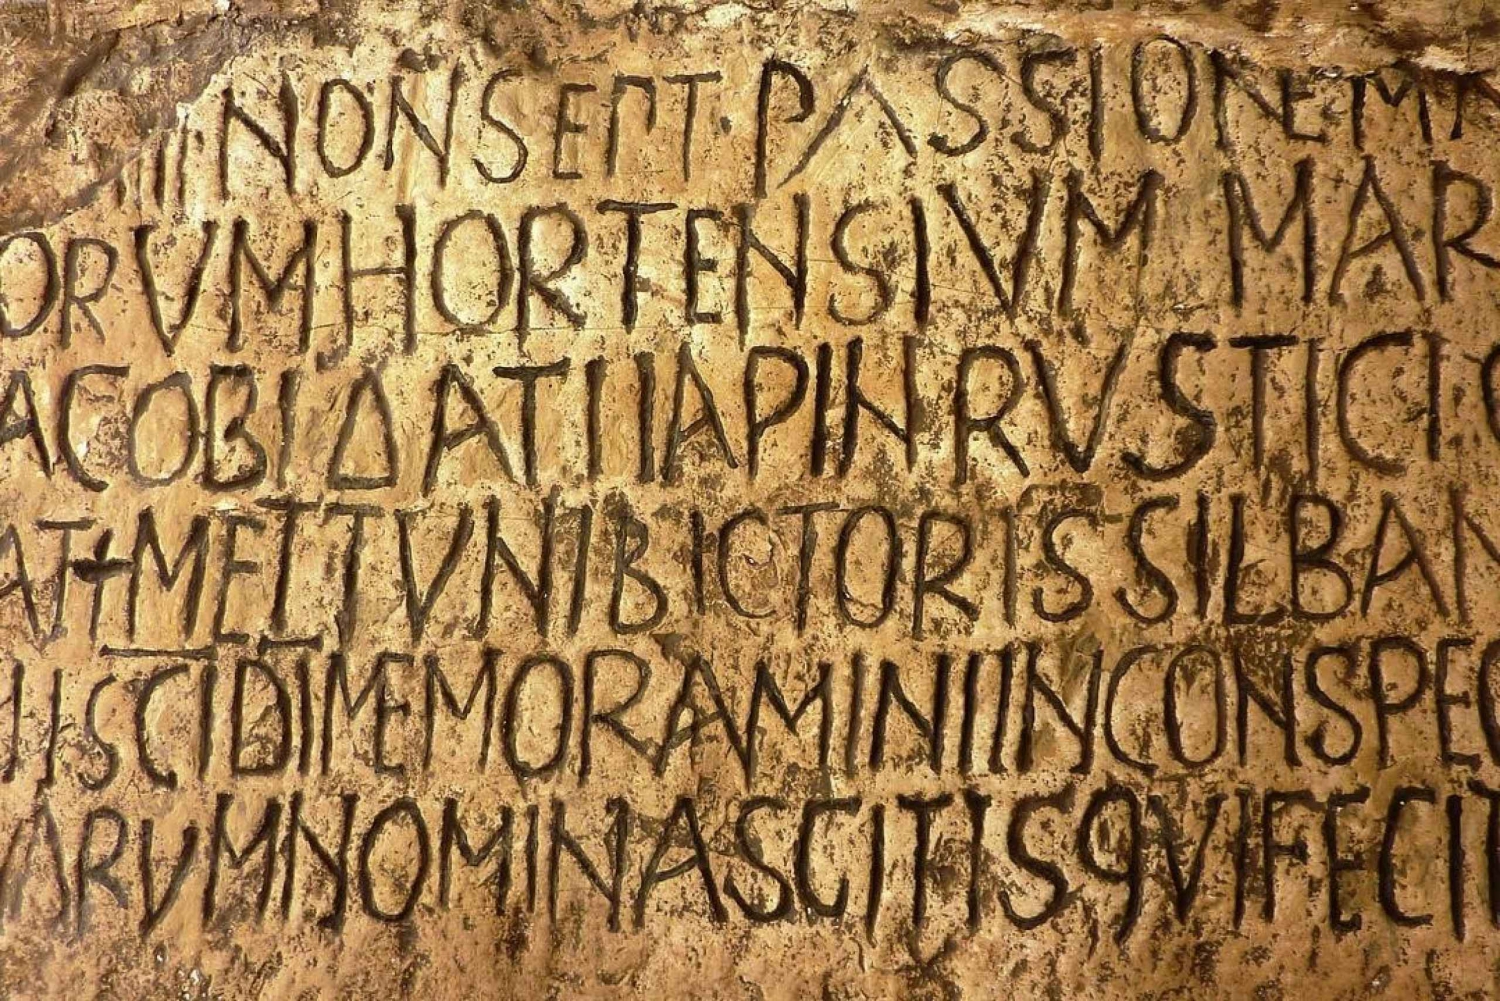 IIII NON SEPT· PASSIONE M
ORVM HORTENSIVM MAR
ACOBI DATI IAPIN RVSTICI C
AT + METTVNI BICTORIS SILBAN
II SCI DI MEMORAMINI IN CONSPEC
ARVM NOMINA SCITIS QVI FECIT